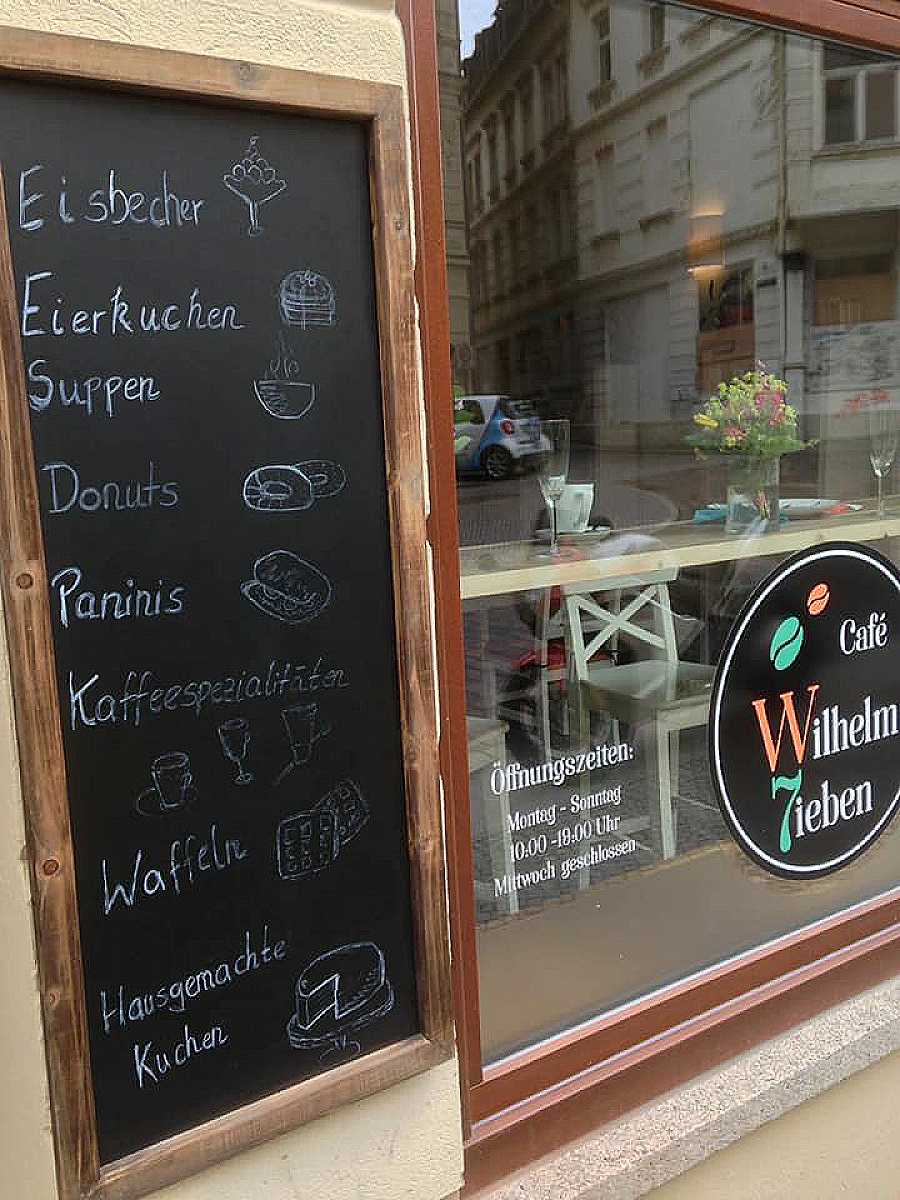 Eisbecher
Eierkuchen
Suppen
Donuts
Paninis
Kaffeespezialitäten
Waffeln
Hausgemachte
Kuchen
Öffnungszeiten:
Montag - Sonntag
10.00 -18.00 Uhr
Mittwoch geschlossen
Café
Wilhelm
7ieben